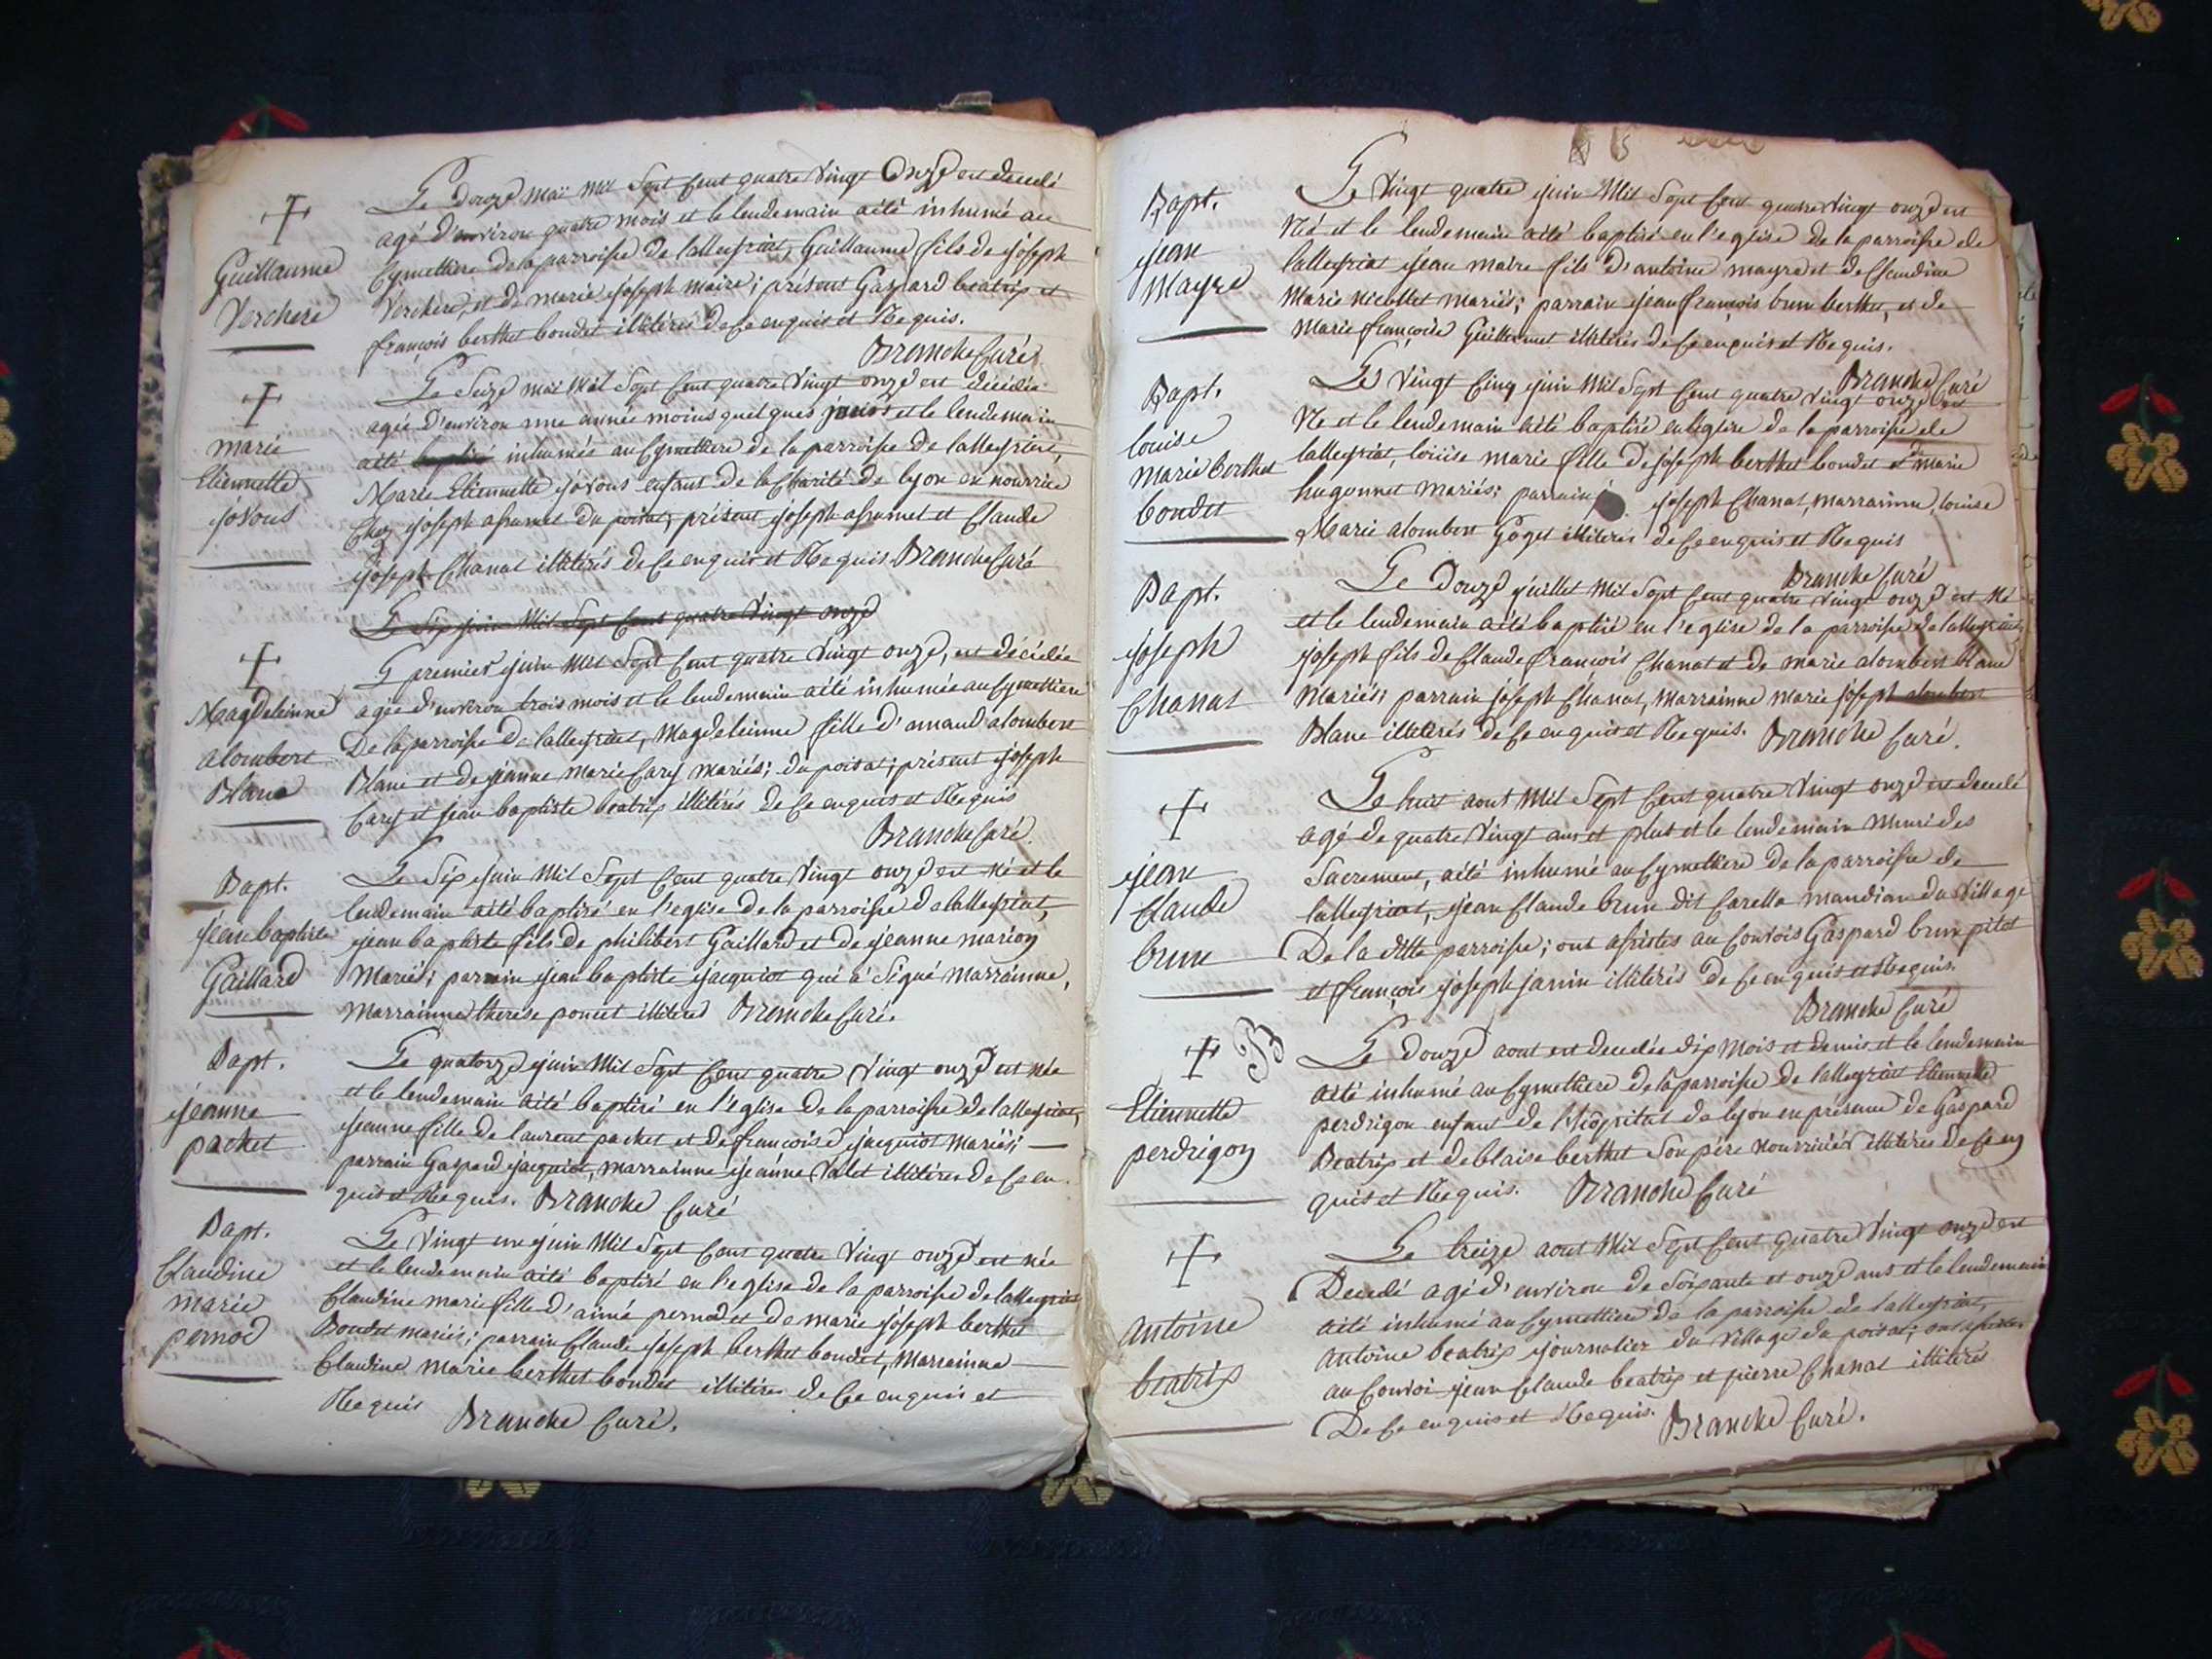 Le douze maï mil Sept Cent quatre Vingt Onze est decedé
agé d'environ quatre mois et le lendemain aété inhumé au
Guillaume
Cymettiere de la parroisse de lalleyriat, Guillaume fils de joseph
Verchere
Verchere, et de marie joseph maire; présent Gaspard beatrix et
françois berthet bondet illitérés de Ce enquis et Requis.
Branche Curé
Le Seize maï Mil Sept Cent quatre Vingt onze est décédée
agée d'environ une année moins quelques jours et le lendemain
marie
aété baptisé inhumée au Cymettiere de la parroisse de lalleyriat,
Etiennette
Marie Etiennette joyous enfant de la Charité de lyon en nourrice
joyous
Chez joseph assumet du poizat, présent joseph assumet et Claude
joseph Chanat illitérés de Ce enquis et Requis Branche Curé
Le Six juin Mil Sept Cent quatre Vingt onze
L premier juin Mil Sept Cent quatre Vingt onze, est décédée
Magdeleinne
agée d'environ trois mois et le lendemain aété inhumée au Cymettiere
alombert
De la parroisse de lalleyriat, Magdeleinne fille d'amand alombert
Blanc
Blanc et de jeanne marie Cary mariés; du poisat; présent joseph
Cary et jean baptiste beatrix illitérés de Ce enquis et Requis
Branche Curé
Bapt.
Le Six juin Mil Sept Cent quatre Vingt onze est né et le
lendemain aété baptisé en l'eglise de la parroisse de lalleyriat,
jean baptiste
jean baptiste fils de philibert Gaillard et de jeanne marion
Gaillard
Mariés; parrain jean baptiste jacquiot qui a Signé marrainne,
Marrainne therese poncet illitéré Branche Curé.
Bapt.
Le quatorze juin Mil Sept Cent quatre Vingt onze est née
et le lendemain aété baptisé en l'eglise de la parroisse de lalleyriat,
jeanne
jeanne fille de laurent packet et de francoise jacquiot Mariés;
packet
parrain Gaspard jacquiot, marrainne jeanne Valet illitérés de Ce en
quis et Requis. Branche Curé
Bapt.
Le Vingt un juin Mil Sept Cent quatre Vingt onze est née
et le lendemain aété baptisé en l'eglise de la parroisse de lalleyriat
Claudine
Claudine marie fille d'aimé pernod et de marie joseph berthet
marie
Bondet mariés; parrain Claude joseph berthet bondet, Marrainne
pernod
Claudine marie berthet bondet illitérés de Ce enquis et
Requis Branche Curé.
Bapt.
Le Vingt quatre juin Mil Sept Cent quatre Vingt onze est
Né et le lendemain aété baptisé en l'eglise de la parroisse de
jean
lalleyriat jean maire fils d'antoine mayre et de Claudine
Mayre
Marie nicollet mariés; parrain jean françois brun berthet, et de
Marie françoise Guillermet illitérés de Ce enquis et Requis.
Branche Curé
Bapt.
Le Vingt Cinq juin Mil Sept Cent quatre Vingt onze est
Né et le lendemain aété baptisé en l'eglise de la parroisse de
louise
lalleyriat, louise marie fille de joseph berthet bondet et de Marie
marie berthet
hugonnet Mariés; parrain joseph Chanat, marrainne, louise
bondet
Marie alombert Goget illitérés de Ce enquis et Requis
Branche Curé
Bapt.
Le Douze juillet Mil Sept Cent quatre Vingt onze est Né
et le lendemain aété baptisé en l'eglise de la parroisse de lalleyriat,
joseph
joseph fils de Claude françois Chanat et de marie alombert blanc
Chanat
Mariés; parrain joseph Chanat, Marrainne marie joseph alombert
Blanc illitérés de Ce enquis et Requis. Branche Curé.
Le huit aout Mil Sept Cent quatre Vingt onze est decedé
agé de quatre Vingt ans et plus et le lendemain Muni des
jean
Sacrement, aété inhumé au Cymettiere de la parroisse de
Claude
lalleyriat, jean Claude brun dit Carella mandian du Village
brun
De la ditte parroisse; ont assistes au Convois Gaspard brun pitot
et françois joseph janin illitérés de Ce enquis et Requis.
Branche Curé
B
Le douze aout est decedée dix Mois et demis et le lendemain
aété inhumé au Cymettiere de la parroisse de lalleyriat Etiennette
Etiennette
perdrigon enfant de l'hôpital de lyon en présence de Gaspard
perdrigon
Beatrix et de blaise berthet Son père nourricier illitérés de Ce en
quis et Requis. Branche Curé
Le treize aout Mil Sept Cent quatre Vingt onze est
Decedé agé d'environ de Soixante et onze ans et le lendemain
aété inhumé au Cymettiere de la parroisse de lalleyriat,
antoine
antoine beatrix journalier du Village du poizat; ont assistes
beatrix
au Convoi jean Claude beatrix et pierre Chanat illitérés
De Ce enquis et Requis. Branche Curé.